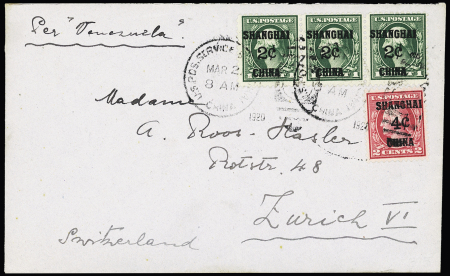 Per "Venezuela"
U.S. POSTAGE U.S. POSTAGE U.S. POSTAGE
SHANGHAI SHANGHAI SHANGHAI
2¢ 2¢ 2¢
CHINA CHINA CHINA
U.S. POS. SERVICE
MAR 2
8 AM
CHINA
1920
SHANGHAI
4¢
CHINA
2 CENTS 2
Madame
A. Roos-Hasler
Rotstr. 48
Zurich VI
Switzerland